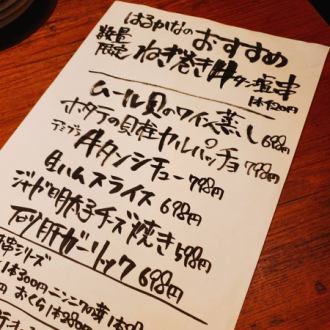 はるかなのおすすめ
数量限定 ねぎ巻き牛タン塩串
ムール貝のワイン蒸し 698円
ホタテの貝柱カルパッチョ 798円
牛タンシチュー 798円
生ハムスライス 698円
ジャガ明太子チーズ焼き 598円
砂肝ガーリック 698円
串シリーズ
1本300円 ニンニクの芽 1本
おくら 1本280円